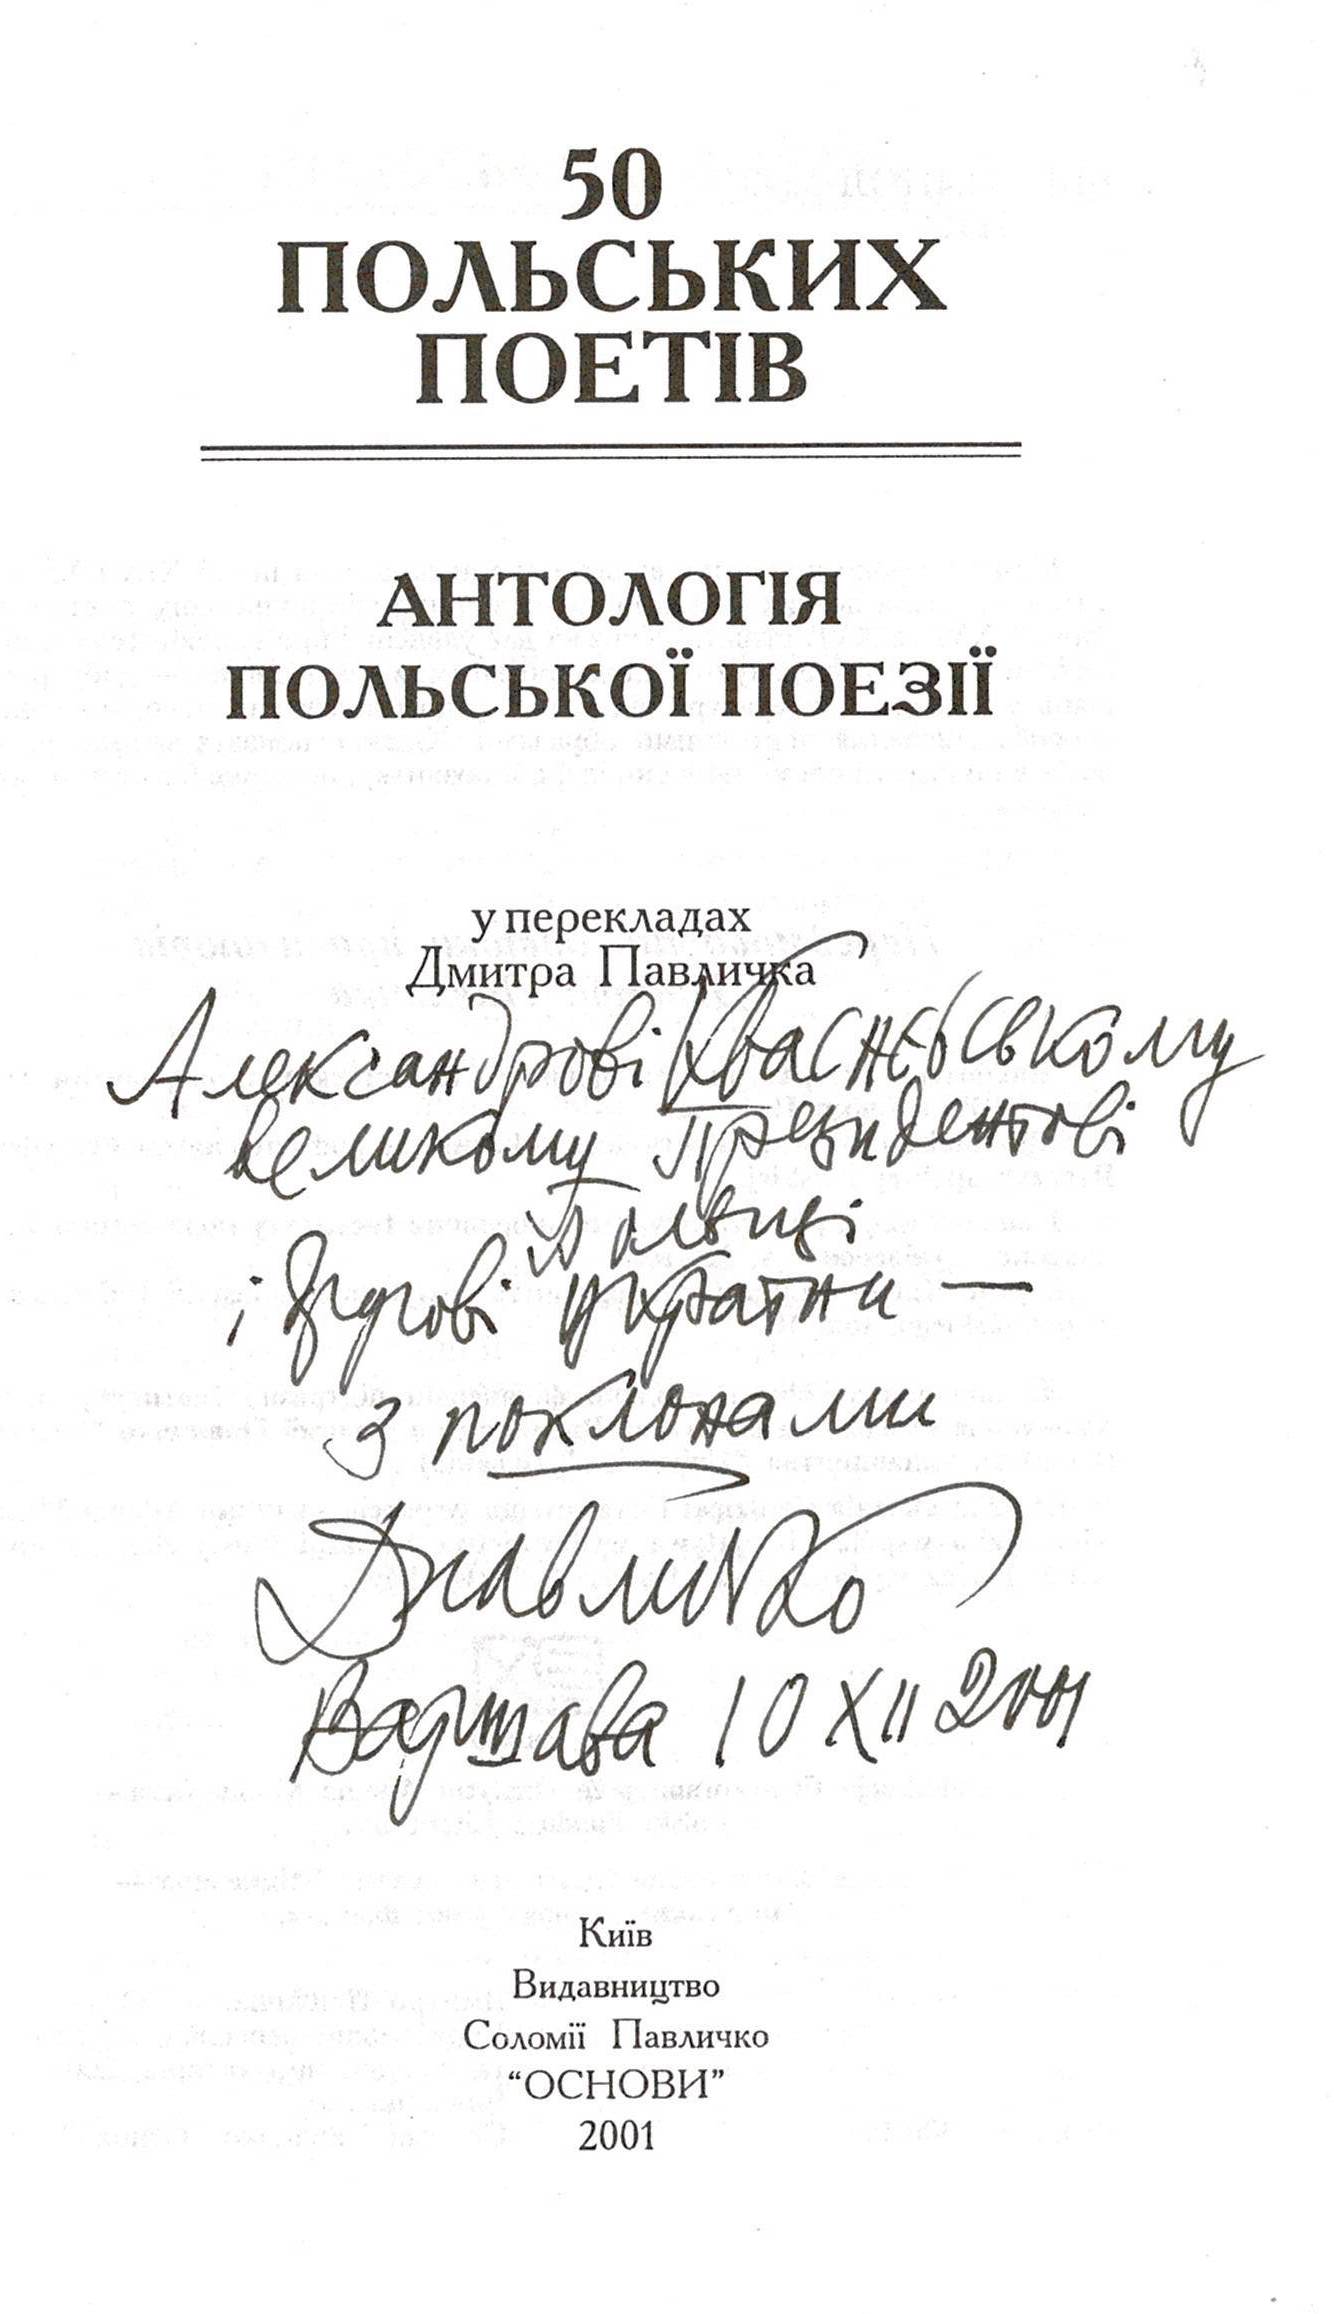 50
ПОЛЬСЬКИХ
ПОЕТІВ
АНТОЛОГІЯ
ПОЛЬСЬКОЇ ПОЕЗІЇ
у перекладах
Дмитра Павличка
Александрові Квасневському
великому Президентові
Польщі
і Другові України —
з поклонами
ДПавличко
Варшава 10 XII 2001
Київ
Видавництво
Соломії Павличко
“ОСНОВИ”
2001